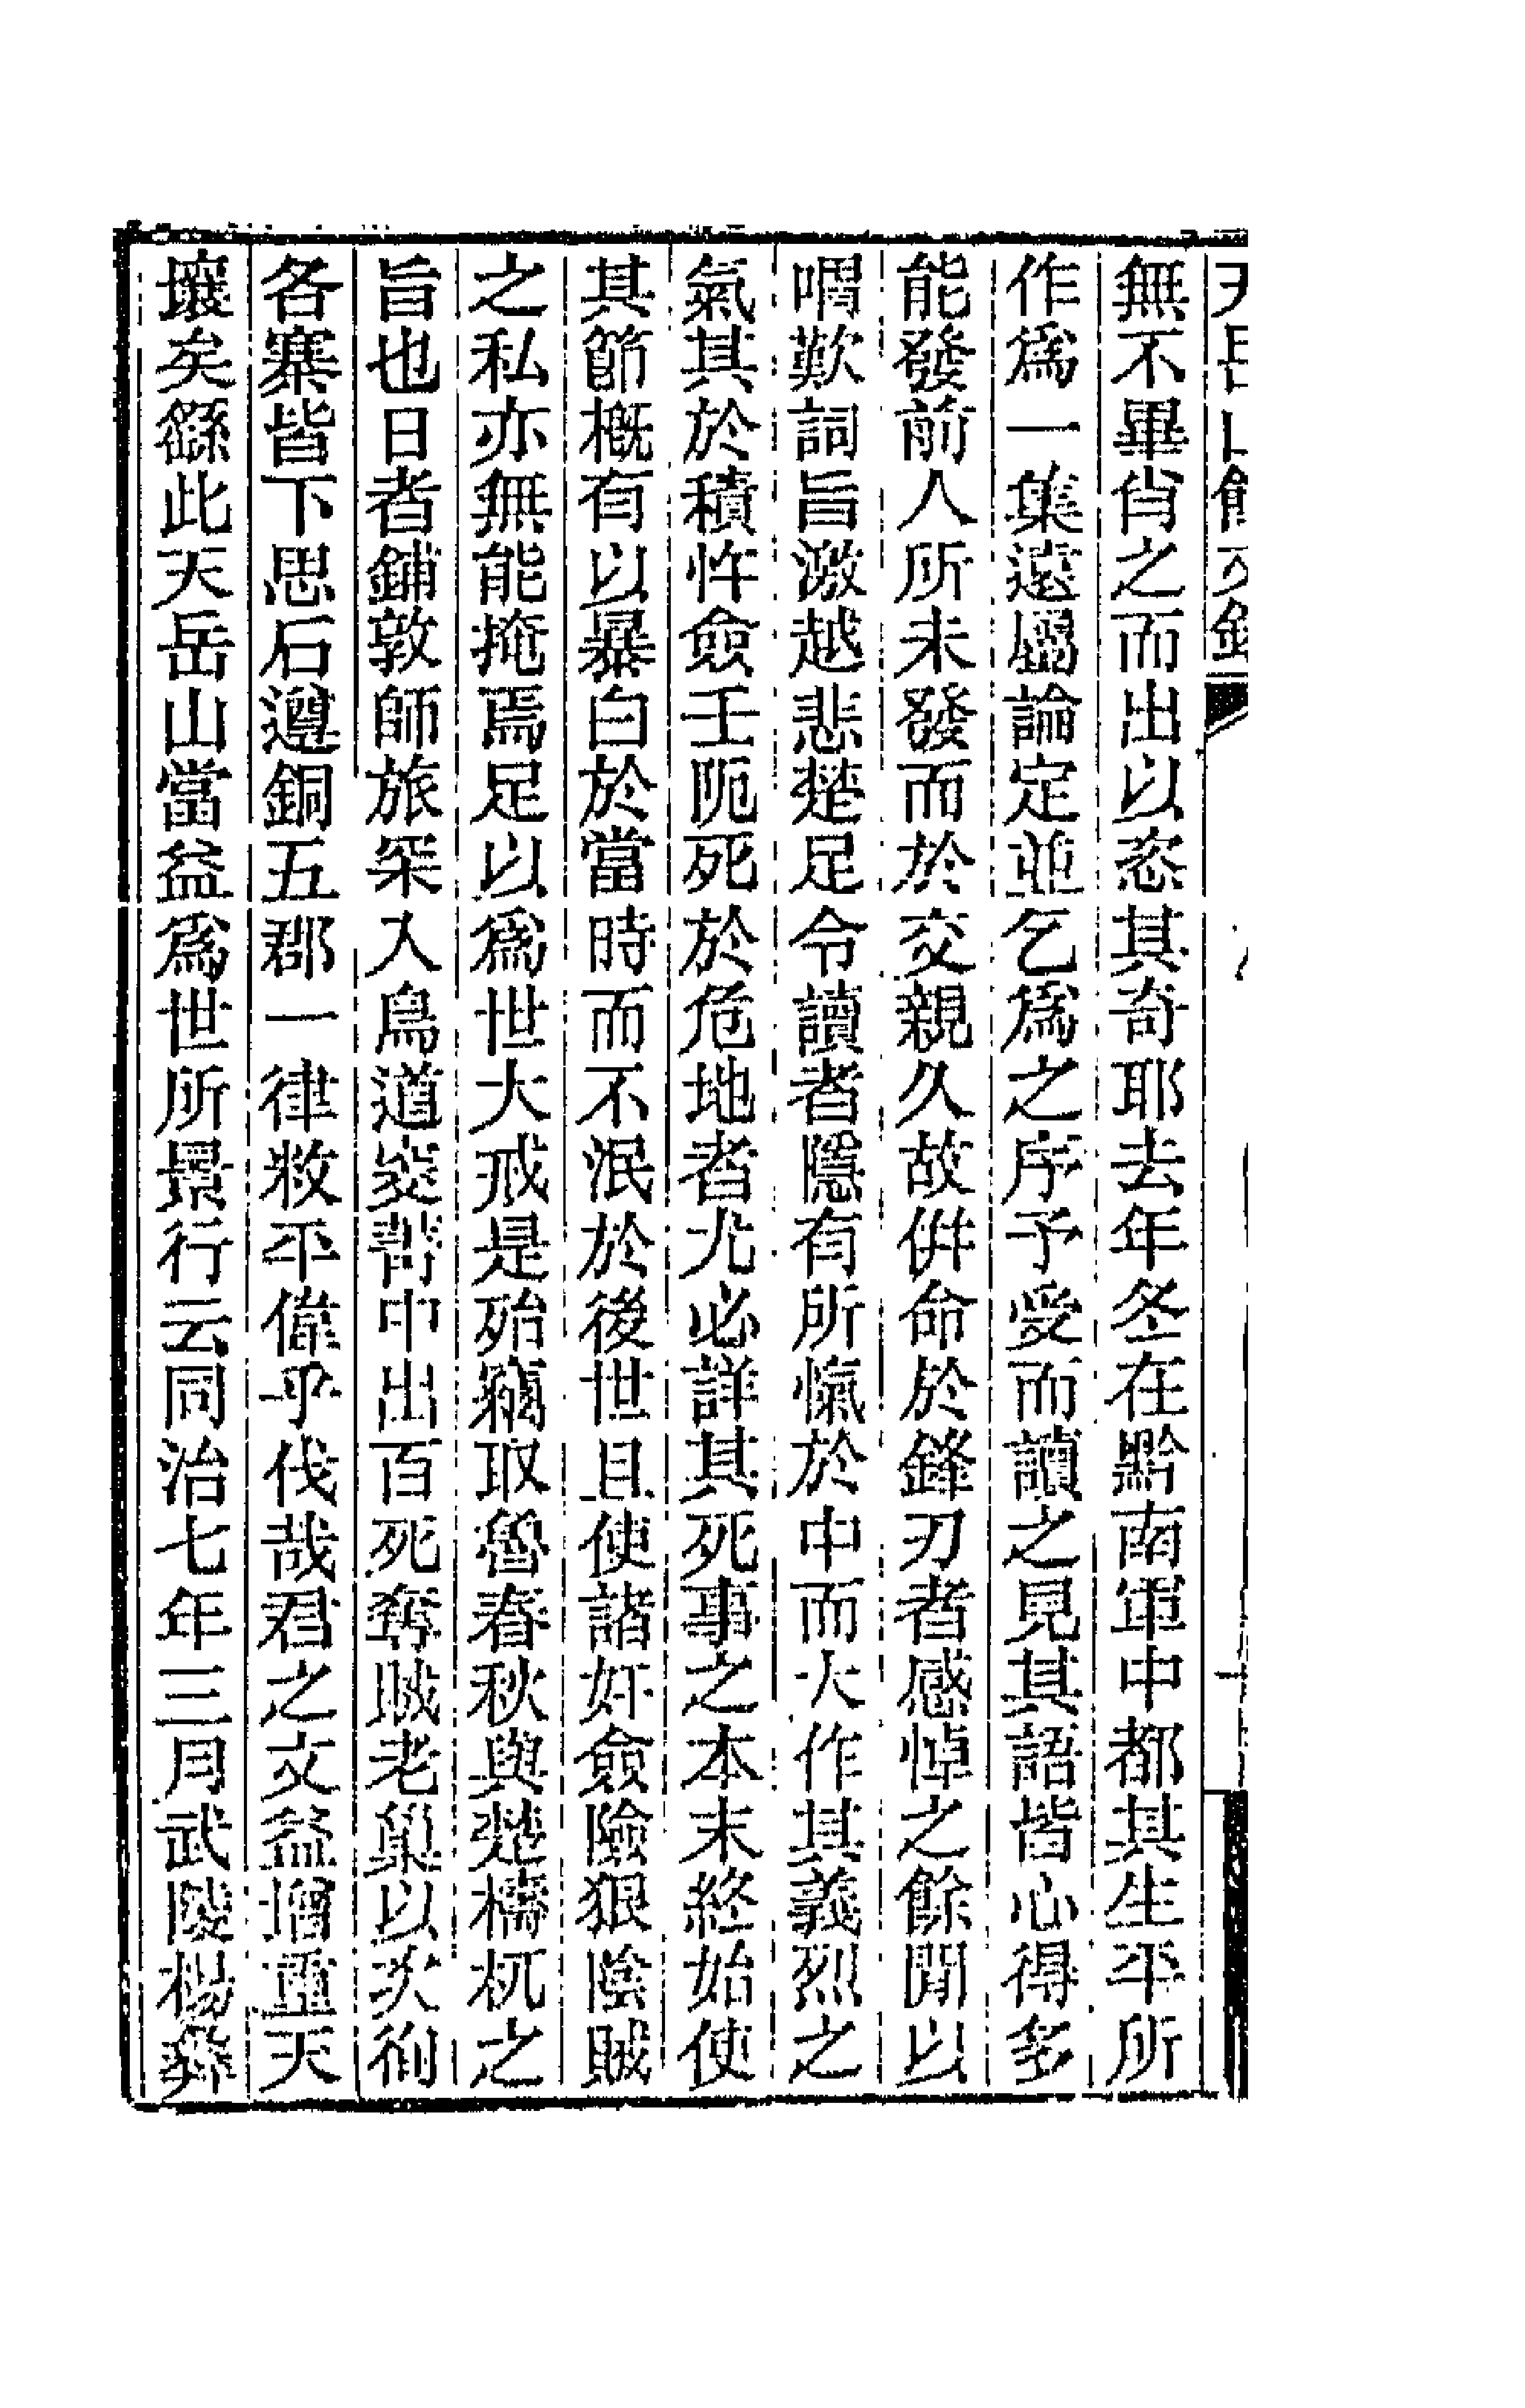 無不畢肖之而出以恣其奇耶去年冬在黔南軍中都其生平所
作爲一集遠屬論定並乞爲之序予受而讀之見其語皆心得多
能發前人所未發而於交親久故倂命於鋒刃者感悼之餘閒以
喟歎詞旨激越悲楚足令讀者隱有所愾於中而大作其義烈之
氣其於積忤僉壬阨死於危地者尤必詳其死事之本末終始使
其節槪有以暴白於當時而不泯於後世且使諸奸僉險狠陰賊
之私亦無能掩焉足以爲世大戒是殆竊取魯春秋與楚檮杌之
旨也日者鋪敦師旅罙入鳥道窔窌中出百死奪賊老巢以次徇
各寨皆下思石遵銅五郡一律敉平偉乎伐哉君之文益增重天
壤矣繇此天岳山當益爲世所景行云同治七年三月武陵楊彝